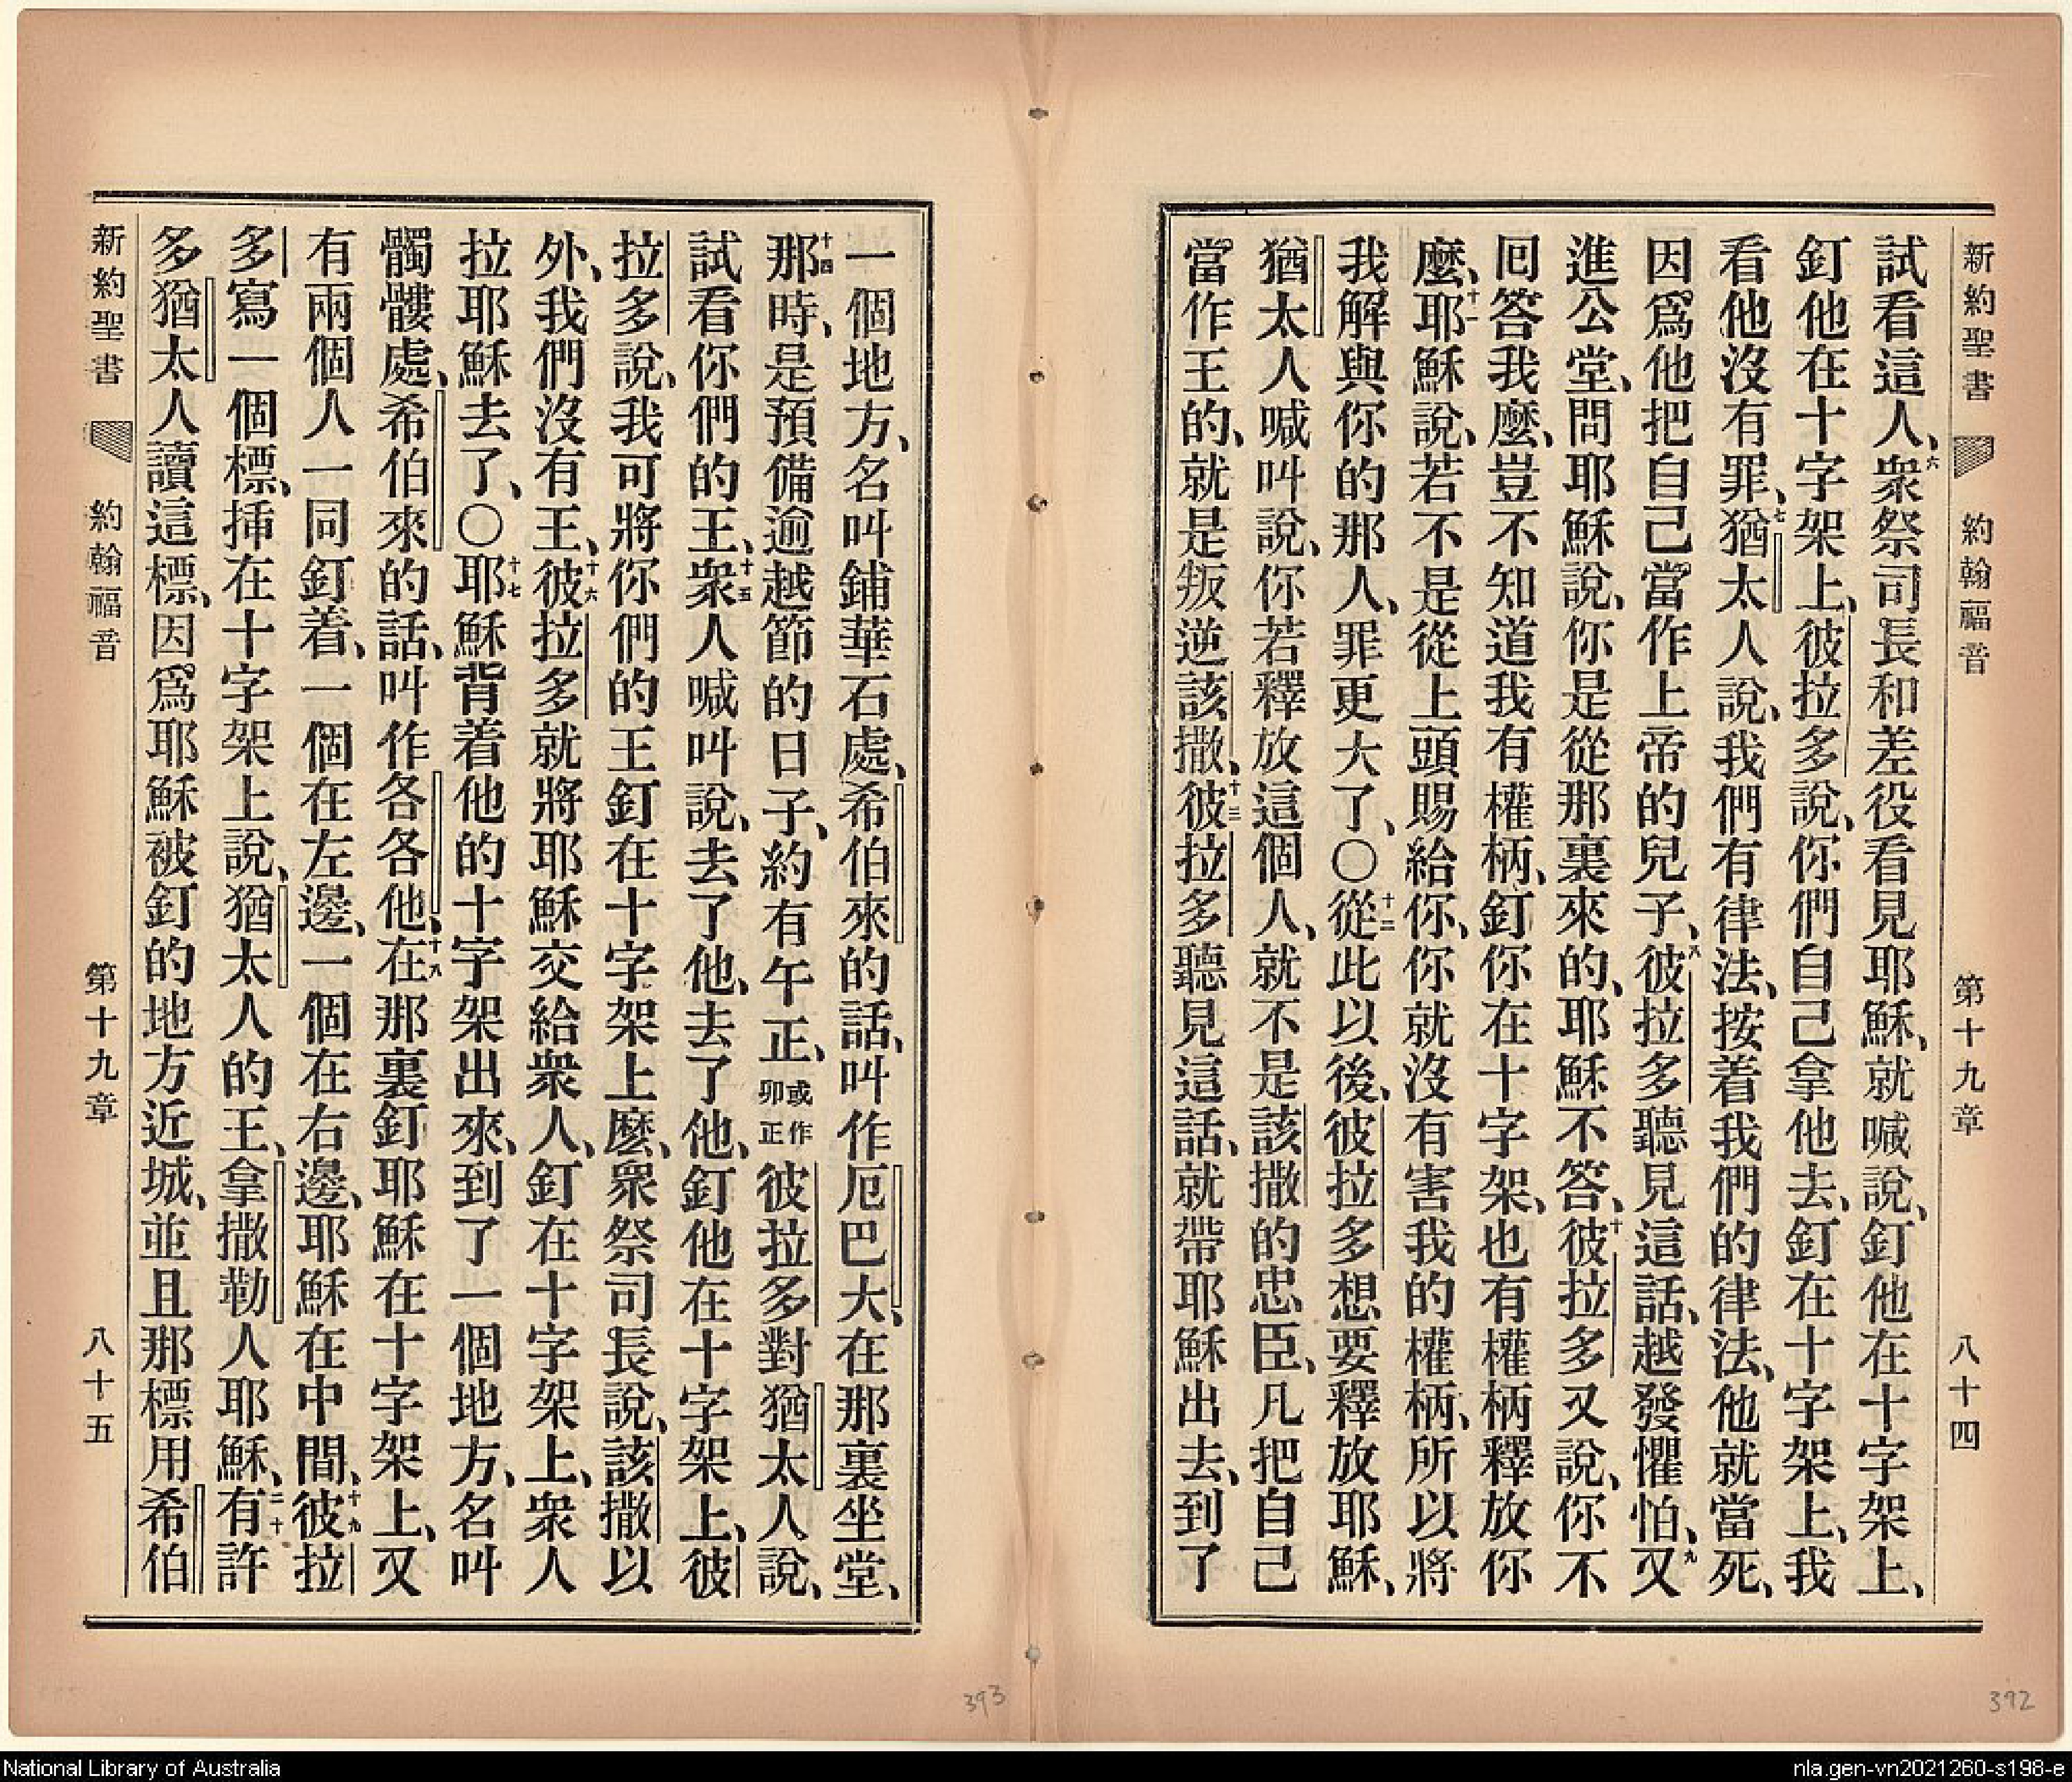 新約聖書 約翰福音 第十九章 八十四
試看這人、六衆祭司長和差役看見耶穌、就喊說、釘他在十字架上、
釘他在十字架上、彼拉多說、你們自己拿他去、釘在十字架上、我
看他沒有罪、七猶太人說、我們有律法、按着我們的律法、他就當死、
因爲他把自己當作上帝的兒子、八彼拉多聽見這話、越發懼怕、九又
進公堂、問耶穌說、你是從那裏來的、耶穌不答、十彼拉多又說、你不
回答我麽、豈不知道我有權柄、釘你在十字架、也有權柄釋放你
麽、十一耶穌說、若不是從上頭賜給你、你就沒有害我的權柄、所以將
我解與你的那人、罪更大了、〇十二從此以後、彼拉多想要釋放耶穌、
猶太人喊叫說、你若釋放這個人、就不是該撒的忠臣、凡把自己
當作王的、就是叛逆該撒、十三彼拉多聽見這話、就帶耶穌出去、到了
一個地方、名叫鋪華石處、希伯來的話、叫作厄巴大、在那裏坐堂、
十四那時、是預備逾越節的日子、約有午正、或作卯正彼拉多對猶太人說、
試看你們的王、十五衆人喊叫說、去了他、去了他、釘他在十字架上、彼
拉多說、我可將你們的王釘在十字架上麽、衆祭司長說、該撒以
外、我們沒有王、十六彼拉多就將耶穌交給衆人、釘在十字架上、衆人
拉耶穌去了、〇十七耶穌背着他的十字架出來、到了一個地方、名叫
髑髏處、希伯來的話、叫作各各他、十八在那裏釘耶穌在十字架上、又
有兩個人一同釘着、一個在左邊、一個在右邊、耶穌在中間、十九彼拉
多寫一個標、揷在十字架上說、猶太人的王、拿撒勒人耶穌、二十有許
多猶太人讀這標、因爲耶穌被釘的地方近城、並且那標用希伯
新約聖書 約翰福音 第十九章 八十五
393
392
National Library of Australia
nla.gen-vn2021260-s198-e